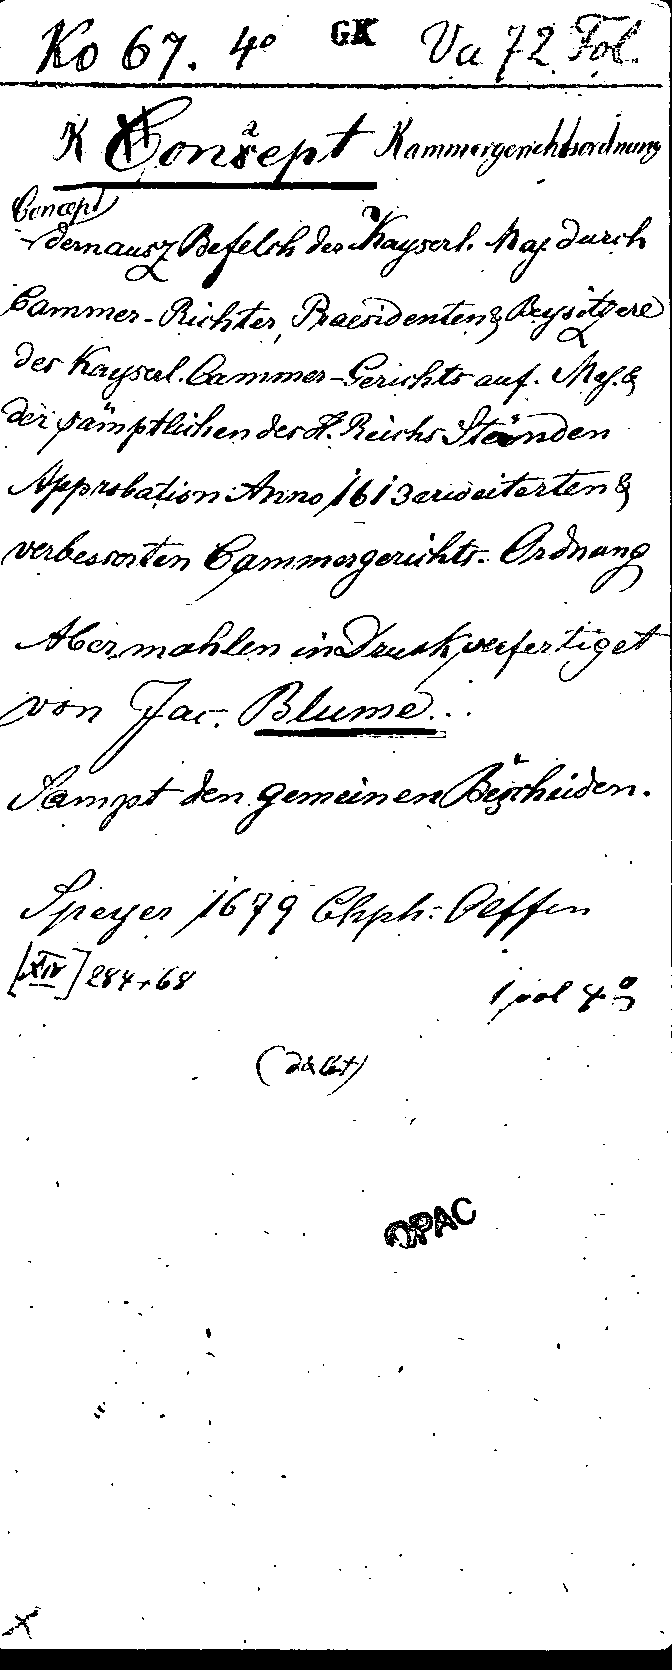 Ko 67. 4° GK Va 72 Fol.
K Consept Kammergerichtsordnung
Concept
dernausz Befelch der Kayserl. Maj. durch
Cammer-Richter, Praesidenten & Beysitzere
des Kayserl. Cammer-Gerichts auf. Maj. &
der sämptlichen des H. Reichs Ständen
Approbation Anno 1613 erweiterten &
verbesserten Cammergerichts-Ordnung
Abermahlen in Druck verfertiget
von Jac. Blume...
Sampt den gemeinen Bescheiden.
Speyer 1679 Chph: Olffen
[XIV] 284 + 68
1 vol 4°
OPAC
x